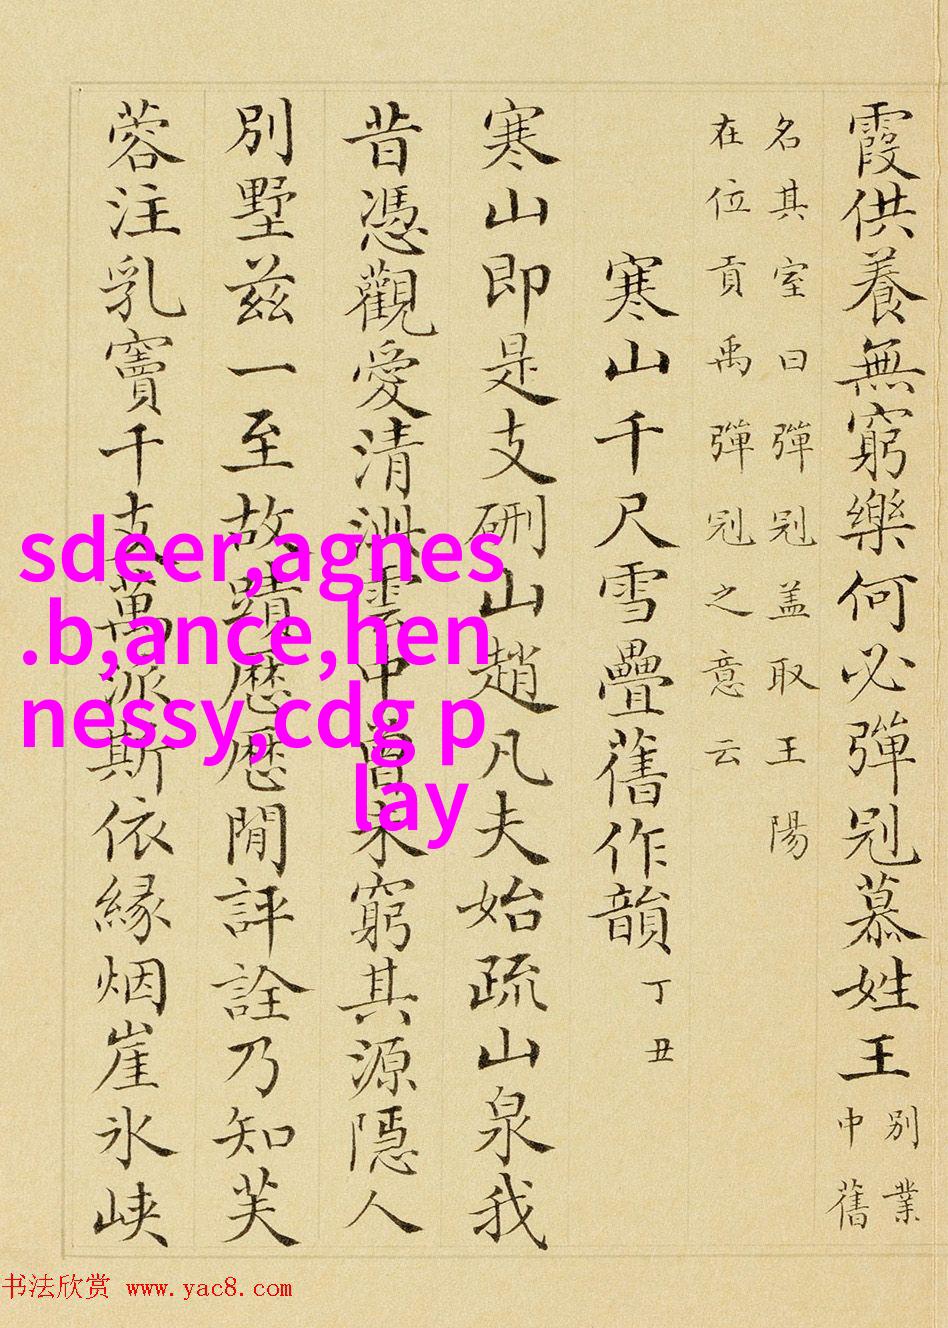 霞供養無窮樂何必彈冠慕姓王別業中舊
名其室曰彈冠盖取王陽
在位貢禹彈冠之意云
寒山千尺雪疊舊作韻丁丑
寒山即是支硎山趙凡夫始疏山泉我
昔憑觀愛清泚雲中曾未窮其源隱人
別墅兹一至故蹟歷歷閒評詮乃知芙
蓉注乳竇千支萬派斯依緣烟崖氷峽
sdeer,agnes
.b,ance,hen
nessy,cdg p
lay
书法欣赏 www.yac8.com